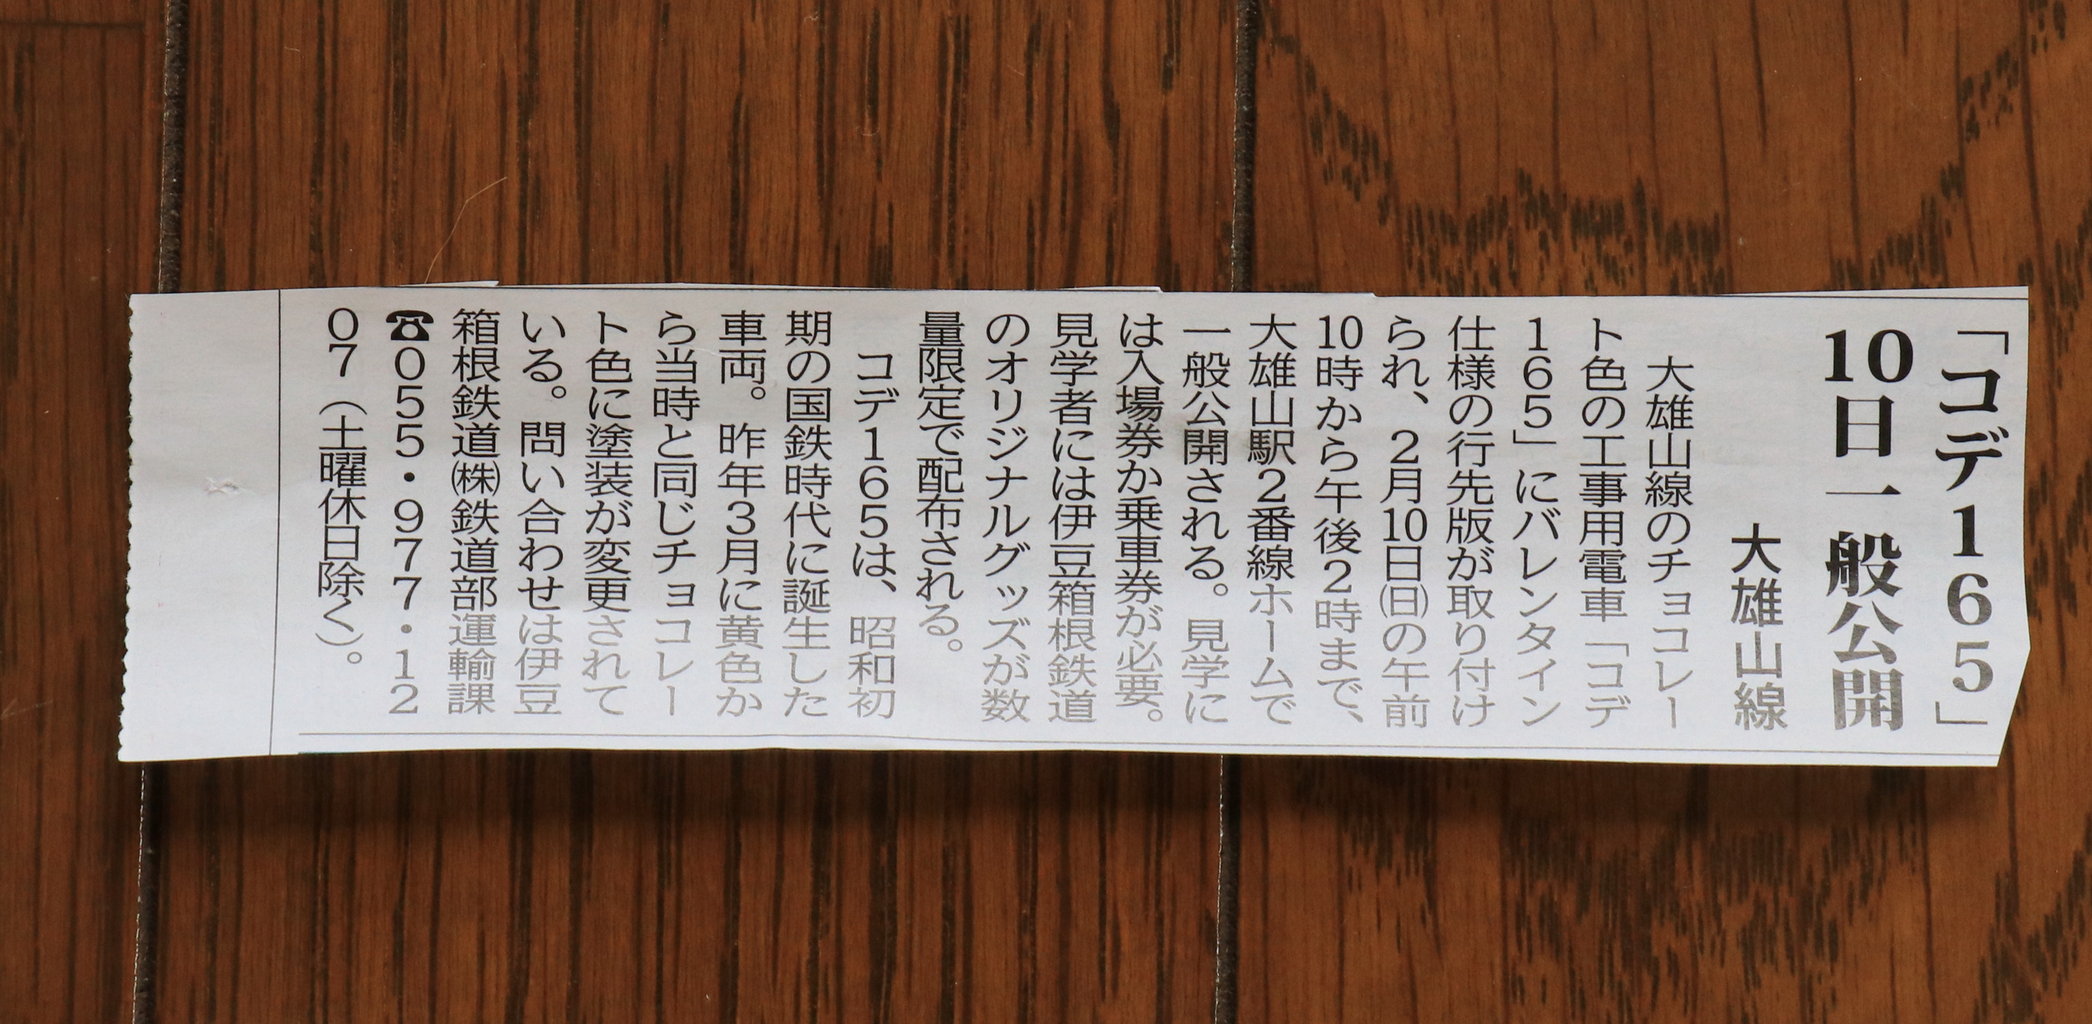 「コデ165」
10日一般公開
大雄山線
大雄山線のチョコレー
ト色の工事用電車「コデ
165」にバレンタイン
仕様の行先版が取り付け
られ、2月10日㈰の午前
10時から午後2時まで、
大雄山駅2番線ホームで
一般公開される。見学に
は入場券か乗車券が必要。
見学者には伊豆箱根鉄道
のオリジナルグッズが数
量限定で配布される。
コデ165は、昭和初
期の国鉄時代に誕生した
車両。昨年3月に黄色か
ら当時と同じチョコレー
ト色に塗装が変更されて
いる。問い合わせは伊豆
箱根鉄道㈱鉄道部運輸課
☎055・977・12
07（土曜休日除く）。